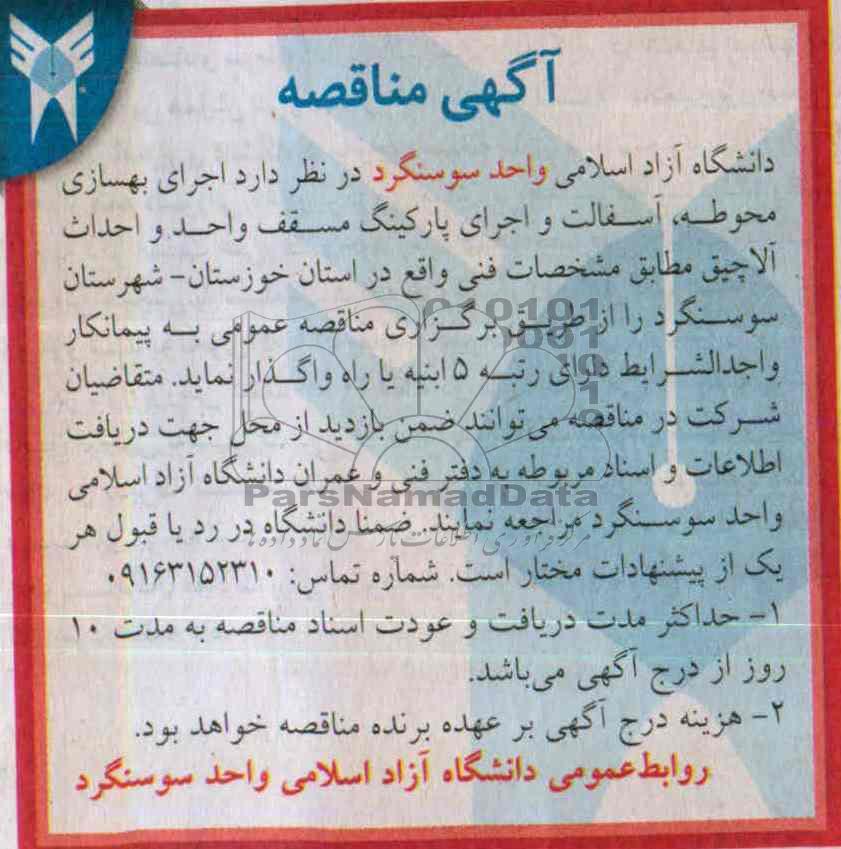 آگهی مناقصه
دانشگاه آزاد اسلامی واحد سوسنگرد در نظر دارد اجرای بهسازی
محوطه، آسفالت و اجرای پارکینگ مسقف واحد و احداث
آلاچیق مطابق مشخصات فنی واقع در استان خوزستان- شهرستان
سوسنگرد را از طریق برگزاری مناقصه عمومی به پیمانکار
واجدالشرایط دارای رتبه ۵ ابنیه یا راه واگذار نماید. متقاضیان
شرکت در مناقصه می‌توانند ضمن بازدید از محل جهت دریافت
اطلاعات و اسناد مربوطه به دفتر فنی و عمران دانشگاه آزاد اسلامی
ParsNamadData
واحد سوسنگرد مراجعه نمایند. ضمنا دانشگاه در رد یا قبول هر
یک از پیشنهادات مختار است. شماره تماس: ۰۹۱۶۳۱۵۲۳۱۰
۱- حداکثر مدت دریافت و عودت اسناد مناقصه به مدت ۱۰
روز از درج آگهی می‌باشد.
۲- هزینه درج آگهی بر عهده برنده مناقصه خواهد بود.
روابط‌عمومی دانشگاه آزاد اسلامی واحد سوسنگرد